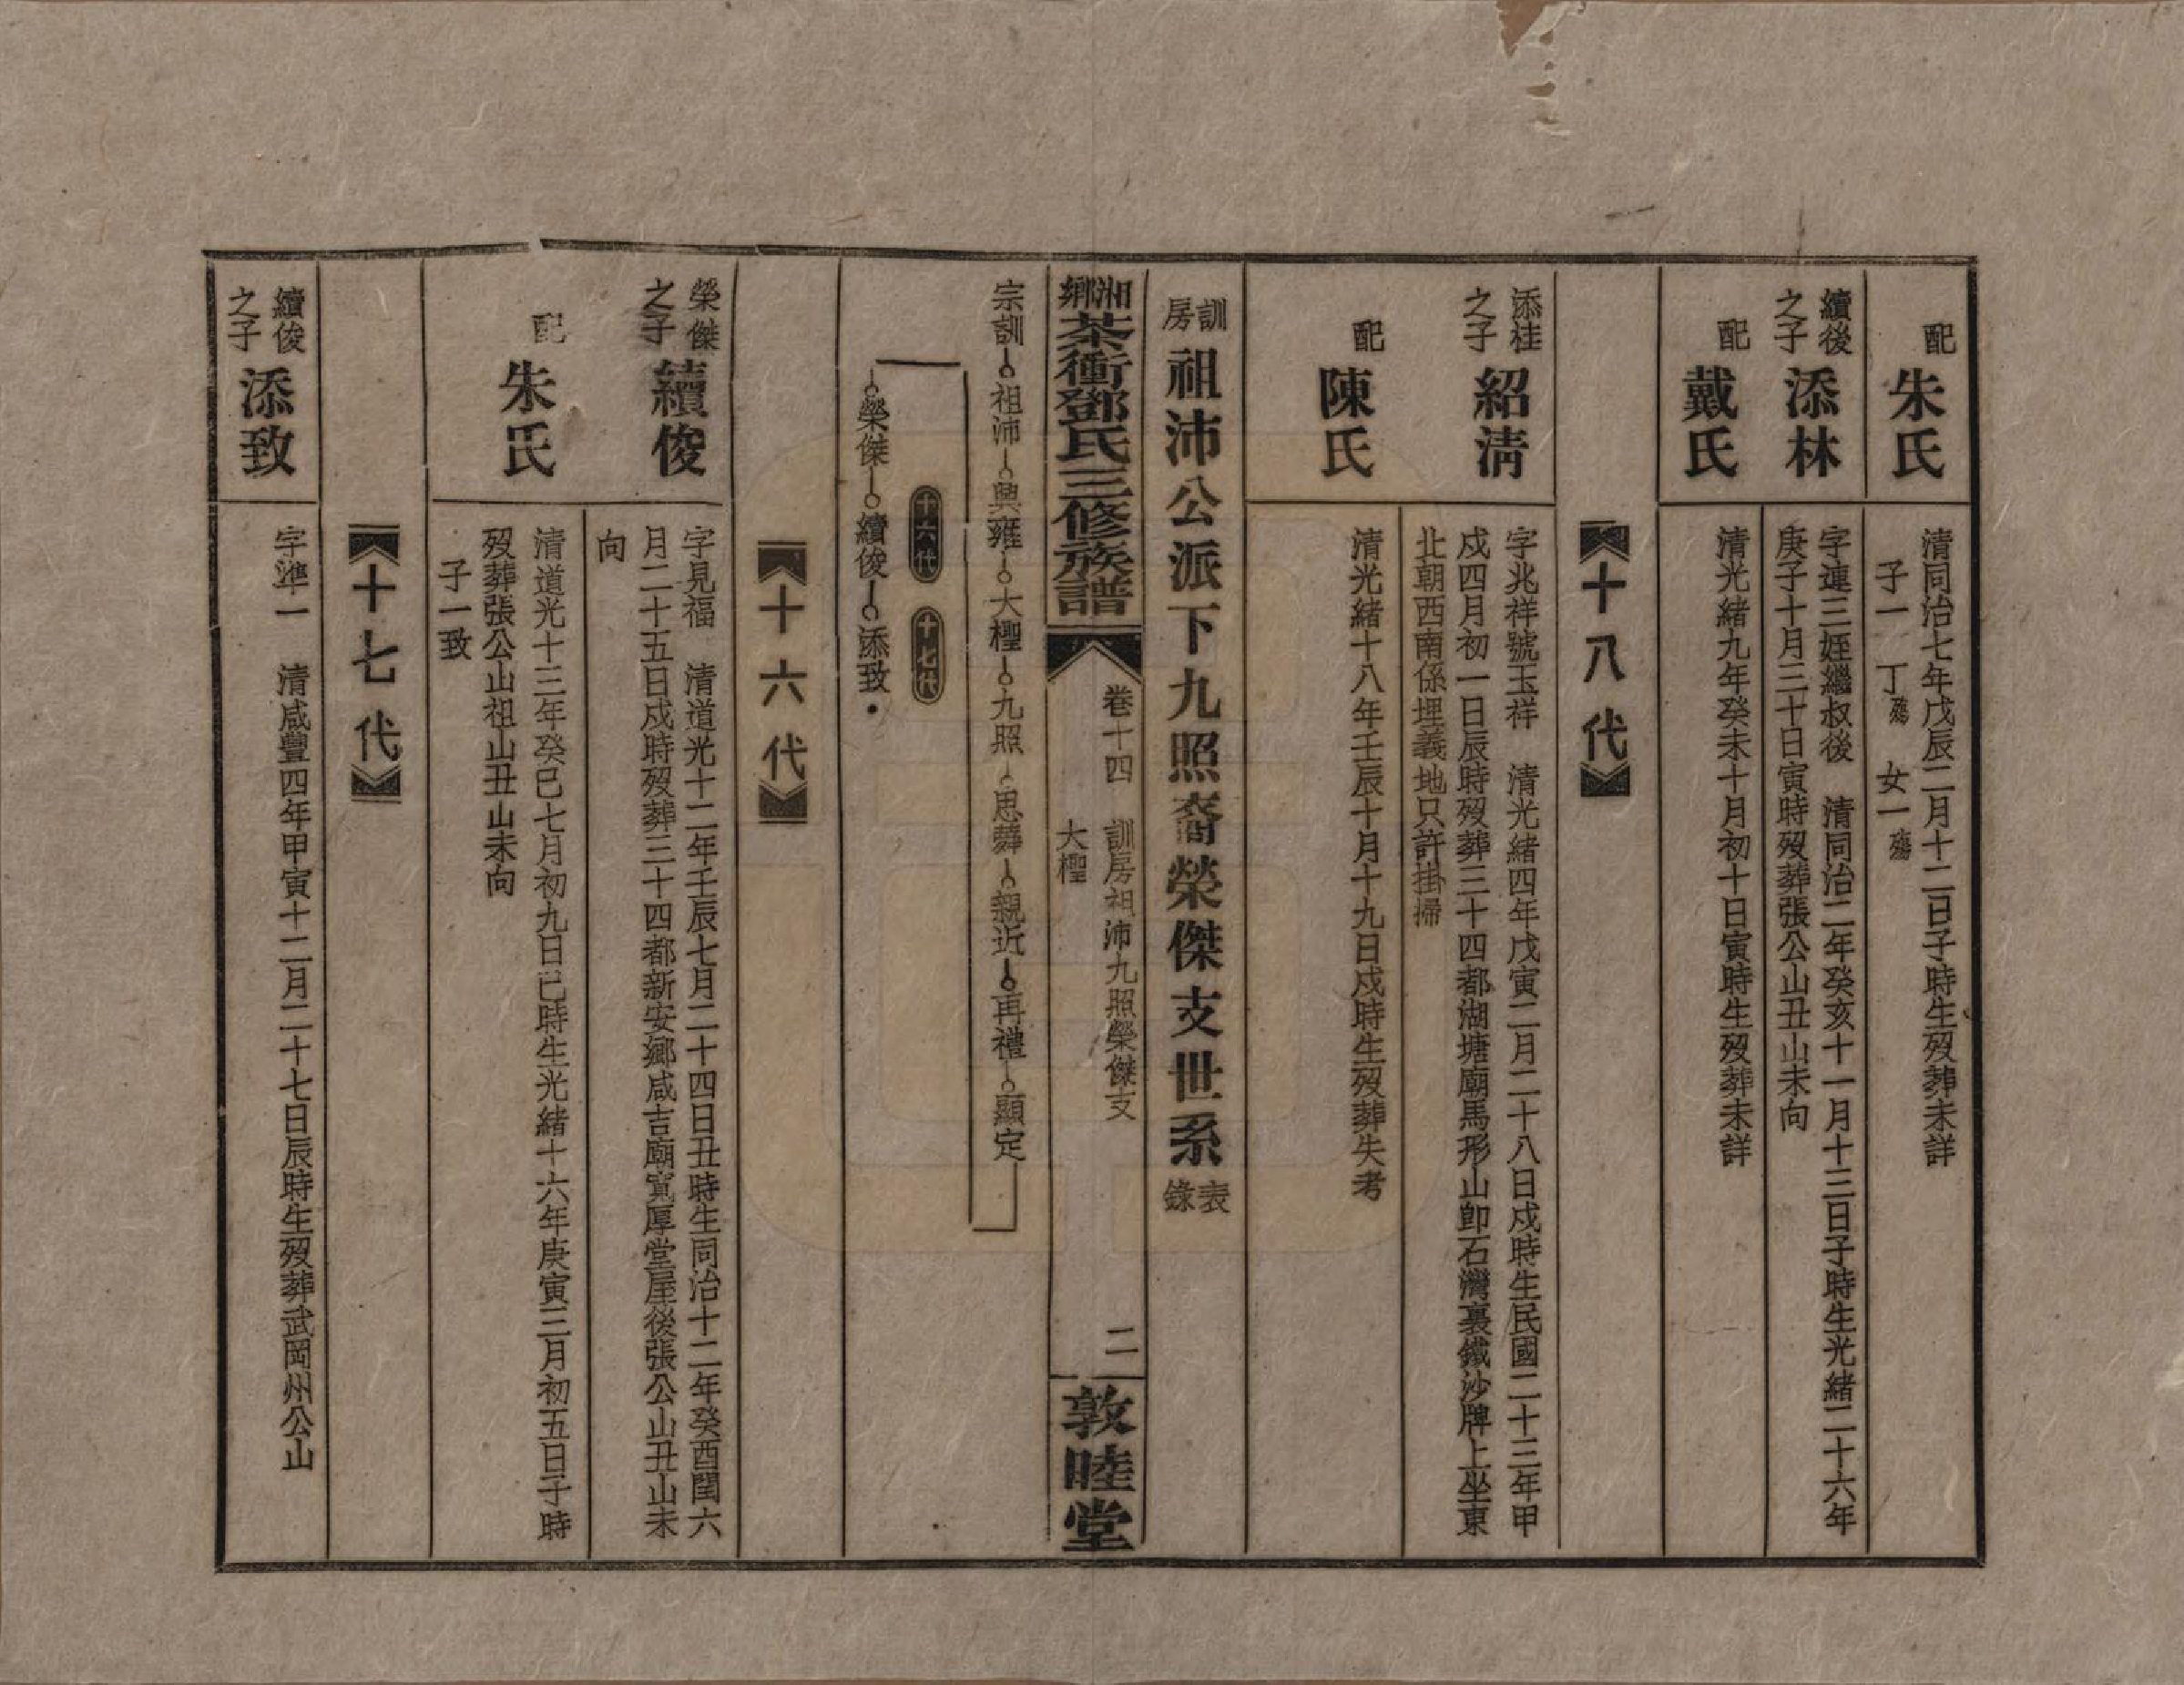 配
朱氏
清同治七年戊辰二月十二日子時生歿葬未詳
子一 丁殤 女一殤
續後
之子
添林
字連三姪繼叔後 清同治二年癸亥十一月十三日子時生光緒二十六年
庚子十月三十日寅時歿葬張公山丑山未向
配
戴氏
清光緒九年癸未十月初十日寅時生歿葬未詳
十八代
添桂
之子
紹淸
字兆祥號玉祥 清光緒四年戊寅二月二十八日戍時生民國二十三年甲
戍四月初一日辰時歿葬三十四都湖塘廟馬形山卽石灣裏鐵沙牌上坐東
北朝西南係埋義地只許掛掃
配
陳氏
清光緒十八年壬辰十月十九日戍時生歿葬失考
訓
房
祖沛公派下九照裔榮傑支世系
表
錄
湘
鄉
茶衝鄧氏三修族譜
卷十四 訓房祖沛九照榮傑支
大檉
二
敦睦堂
宗訓 祖沛 興雍 大檉 九照 思舜 親近 再禮 顯定
十六代 十七代
榮傑 續俊 添致
十六代
榮傑
之子
續俊
字見福 清道光十二年壬辰七月二十四日丑時生同治十二年癸酉閏六
月二十五日戍時歿葬三十四都新安鄉咸吉廟寬厚堂屋後張公山丑山未
向
配
朱氏
清道光十三年癸巳七月初九日巳時生光緒十六年庚寅三月初五日子時
歿葬張公山祖山丑山未向
子一致
十七代
續俊
之子
添致
字準一 清咸豐四年甲寅十二月二十七日辰時生歿葬武岡州公山